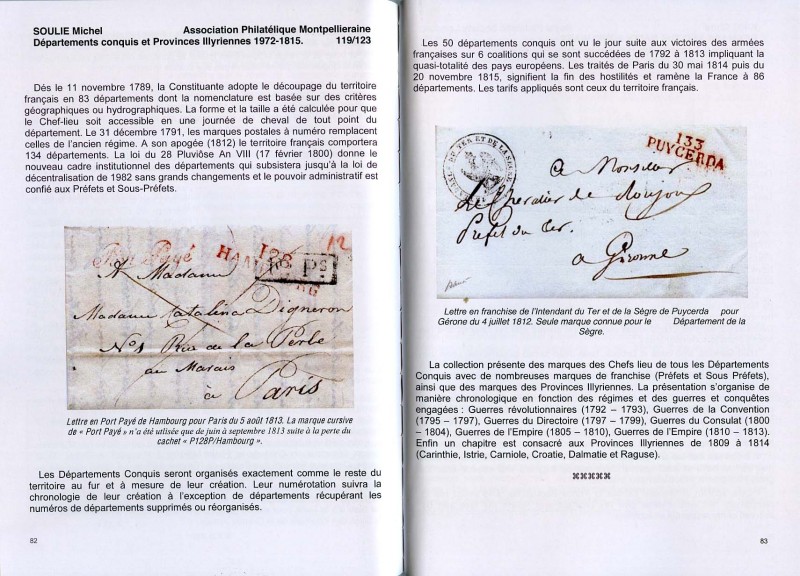 SOULIE Michel Association Philatélique Montpellieraine
Départements conquis et Provinces Illyriennes 1972-1815. 119/123
Dés le 11 novembre 1789, la Constituante adopte le découpage du territoire
français en 83 départements dont la nomenclature est basée sur des critères
géographiques ou hydrographiques. La forme et la taille a été calculée pour que
le Chef-lieu soit accessible en une journée de cheval de tout point du
département. Le 31 décembre 1791, les marques postales à numéro remplacent
celles de l'ancien régime. A son apogée (1812) le territoire français comportera
134 départements. La loi du 28 Pluviôse An VIII (17 février 1800) donne le
nouveau cadre institutionnel des départements qui subsistera jusqu'à la loi de
décentralisation de 1982 sans grands changements et le pouvoir administratif est
confié aux Préfets et Sous-Préfets.
Port Payé
128
12
HAMBOURG
P. P.
A Madame
Madame Catalina Digneron
N° 1 Rue de la Perle
au Marais
à Paris
Lettre en Port Payé de Hambourg pour Paris du 5 août 1813. La marque cursive
de « Port Payé » n'a été utilisée que de juin à septembre 1813 suite à la perte du
cachet « P128P/Hambourg ».
Les Départements Conquis seront organisés exactement comme le reste du
territoire au fur et à mesure de leur création. Leur numérotation suivra la
chronologie de leur création à l'exception de départements récupérant les
numéros de départements supprimés ou réorganisés.
82
Les 50 départements conquis ont vu le jour suite aux victoires des armées
françaises sur 6 coalitions qui se sont succédées de 1792 à 1813 impliquant la
quasi-totalité des pays européens. Les traités de Paris du 30 mai 1814 puis du
20 novembre 1815, signifient la fin des hostilités et ramène la France à 86
départements. Les tarifs appliqués sont ceux du territoire français.
DU TER ET DE LA
133
PUYCERDA
a Monsieur
Le Chevalier de
Préfet du Ter.
a Gironne
Lettre en franchise de l'Intendant du Ter et de la Sègre de Puycerda pour
Gérone du 4 juillet 1812. Seule marque connue pour le Département de la
Sègre.
La collection présente des marques des Chefs lieu de tous les Départements
Conquis avec de nombreuses marques de franchise (Préfets et Sous Préfets),
ainsi que des marques des Provinces Illyriennes. La présentation s'organise de
manière chronologique en fonction des régimes et des guerres et conquêtes
engagées : Guerres révolutionnaires (1792 – 1793), Guerres de la Convention
(1795 - 1797), Guerres du Directoire (1797 – 1799), Guerres du Consulat (1800
– 1804), Guerres de l'Empire (1805 – 1810), Guerres de l'Empire (1810 – 1813).
Enfin un chapitre est consacré aux Provinces Illyriennes de 1809 à 1814
(Carinthie, Istrie, Carniole, Croatie, Dalmatie et Raguse).
⌘⌘⌘⌘⌘
83